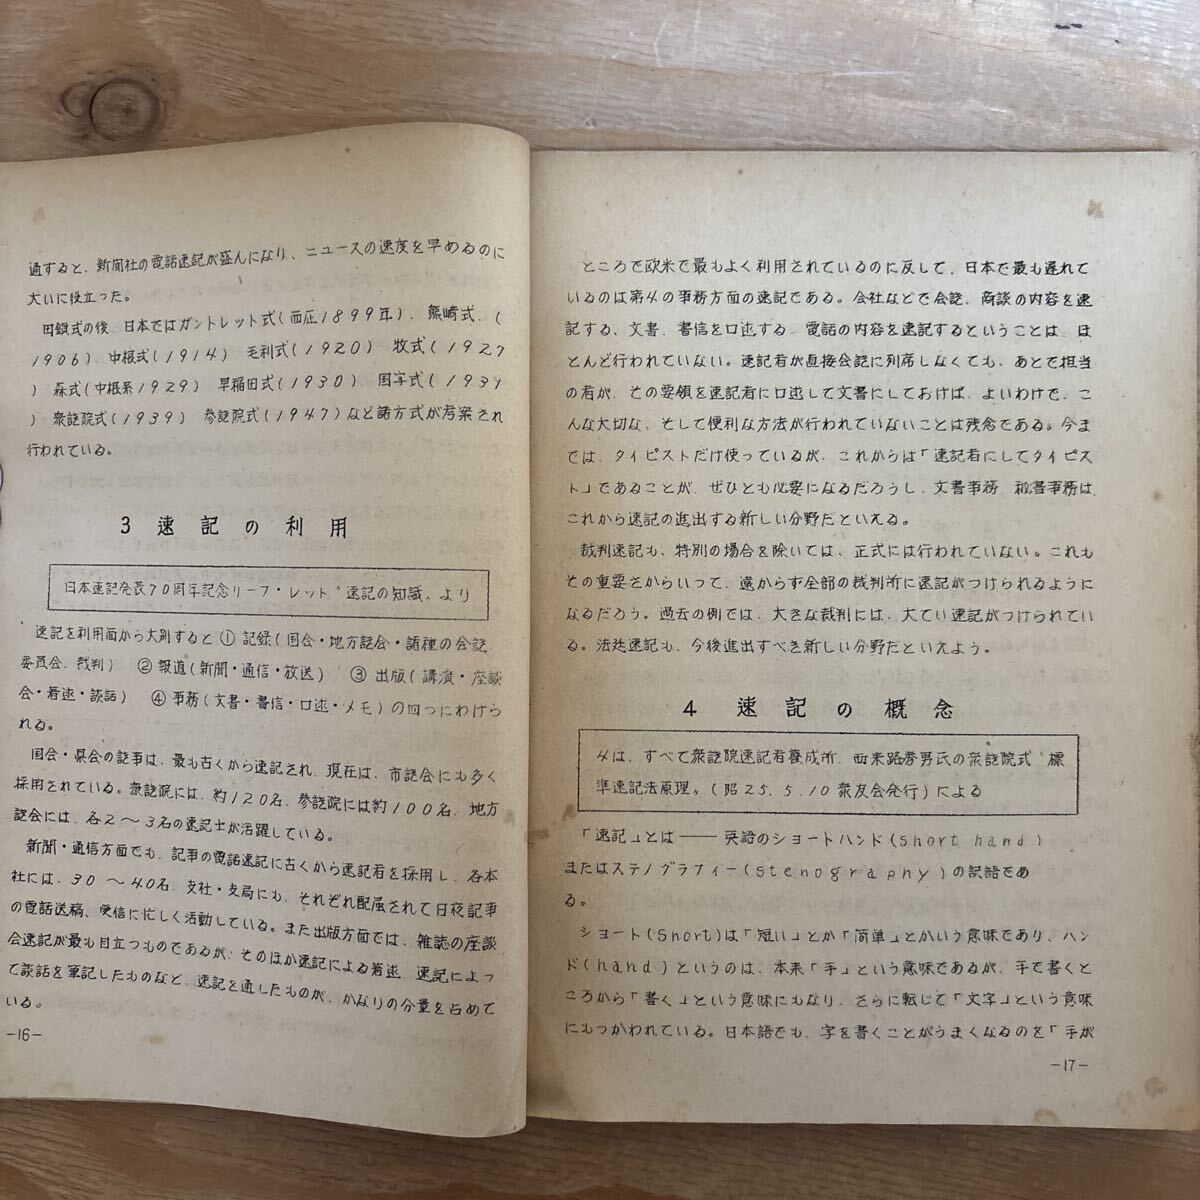 通すると、新聞社の電話速記が盛んになり、ニュースの速度を早めるのに
大いに役立った。
田鎖式の後、日本ではガントレット式(西圧1899年)、熊崎式、(
1906)、中根式(1914) 毛利式(1920) 牧式(1927
) 森式(中根系1929) 早稲田式(1930) 国字式(1931
) 衆議院式(1939) 参議院式(1947)など諸方式が考案され
行われている。
3 速記の利用
日本速記発表70周年記念リーフ・レット“速記の知識„より
速記を利用面から大別すると ① 記録(国会・地方議会・諸種の会議
委員会、裁判) ② 報道(新聞・通信・放送) ③ 出版(講演・座談
会・著述・談話) ④ 事務(文書・書信・口述・メモ)の四つにわけら
れる。
国会・県会の議事は、最も古くから速記され、現在は、市議会にも多く
採用されている。衆議院には、約120名、参議院には約100名、地方
議会には、各2〜3名の速記士が活躍している。
新聞・通信方面でも、記事の電話速記に古くから速記者を採用し、各本
社には、30〜40名、支社・支局にも、それぞれ配属されて日夜記事
の電話送稿、受信に忙しく活動している。また出版方面では、雑誌の座談
会速記が最も目立つものであるが、そのほか速記による著述、速記によっ
て談話を筆記したものなど、速記を通したものが、かなりの分量を占めて
いる。
−16−
ところで欧米で最もよく利用されているのに反して、日本で最も遅れて
いるのは第4の事務方面の速記である。会社などで会議、商談の内容を速
記する、文書、書信を口述する、電話の内容を速記するということは、ほ
とんど行われていない。速記者が直接会議に列席しなくても、あとで担当
の者が、その要領を速記者に口述して文書にしておけば、よいわけで、こ
んな大切な、そして便利な方法が行われていないことは残念である。今ま
では、タイピストだけ使っているが、これからは「速記者にしてタイピス
ト」であることが、ぜひとも必要になるだろうし、文書事務 秘書事務は、
これから速記の進出する新しい分野だといえる。
裁判速記も、特別の場合を除いては、正式には行われていない。これも
その重要さからいって、遠からず全部の裁判所に速記がつけられるように
なるだろう。過去の例では、大きな裁判には、大てい速記がつけられてい
る。法廷速記も、今後進出すべき新しい分野だといえよう。
4 速記の概念
4は、すべて衆議院速記者養成所、西来路秀男氏の衆議院式“標
準速記法原理„(昭25.5.10衆友会発行)による
「速記」とは――英語のショートハンド(short hand)
またはステノグラフィー(stenography)の訳語であ
る。
ショート(Short)は「短い」とか「簡単」とかいう意味であり、ハン
ド(hand)というのは、本来「手」という意味であるが、手で書くと
ころから「書く」という意味にもなり、さらに転じて「文字」という意味
にもつかわれている。日本語でも、字を書くことがうまくなるのを「手が
−17−